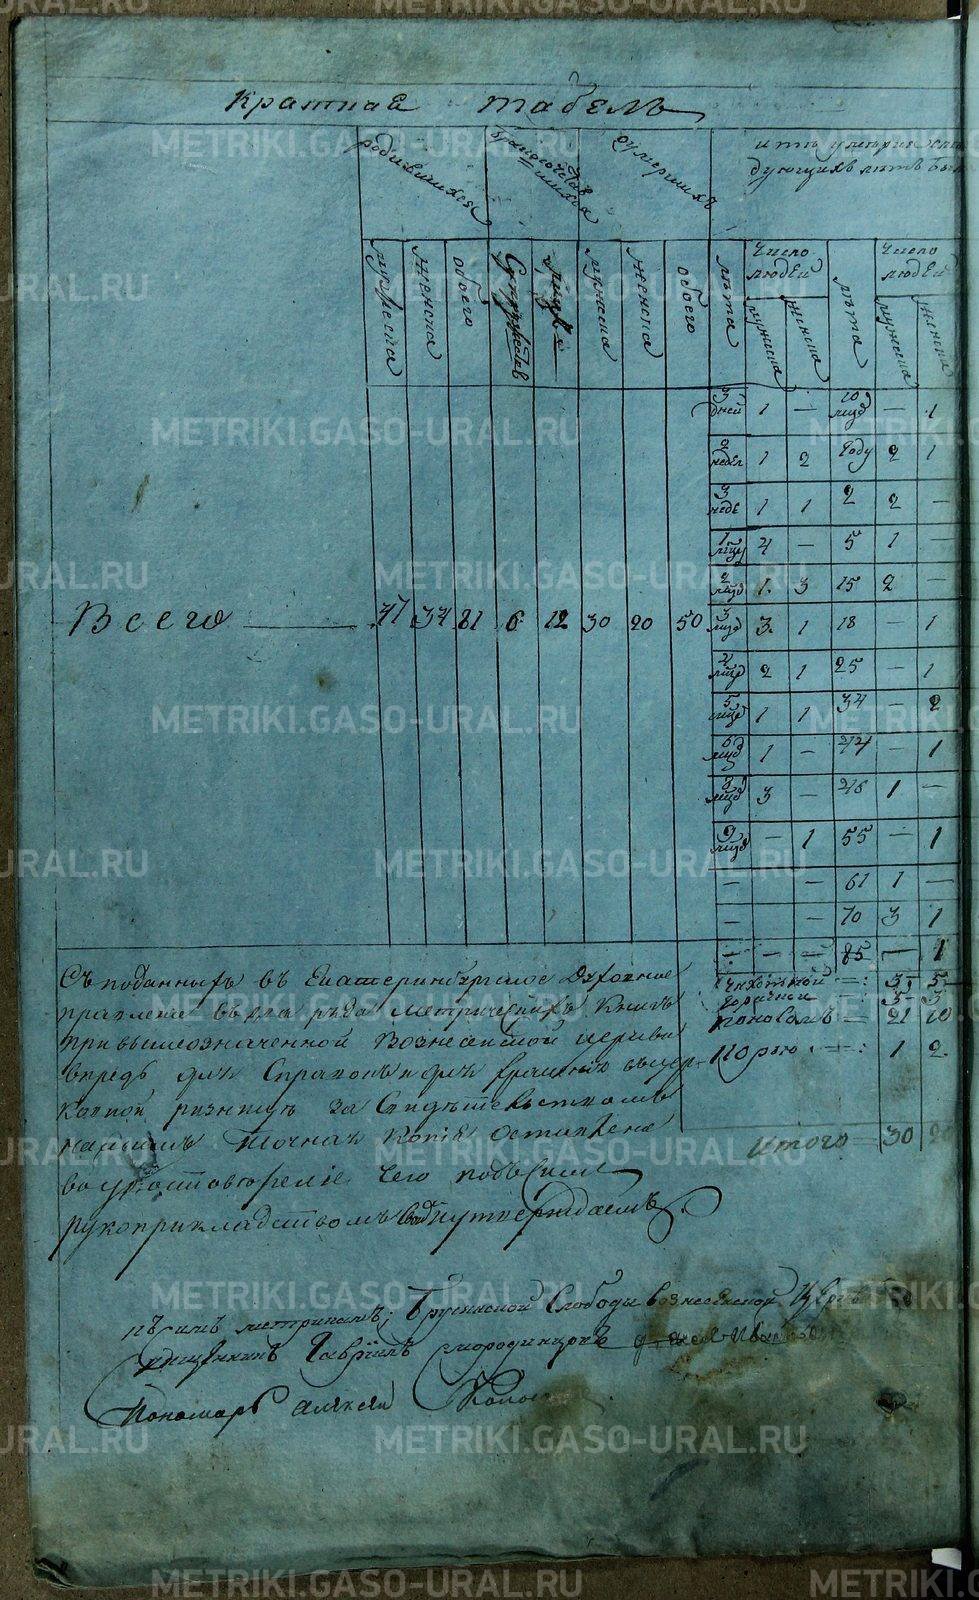 Краткая табель
родившихся
бракосочетавшихся
о умерших
и тѣ умершие слѣ
дующихъ лѣтъ бы
мужеска
женска
обоего
Супружествъ
мужеска
женска
обоего
лѣта
Число людей
мужеска
женска
лѣта
Число людей
мужеска
женска
3 дней 1 — 10 мцъ — 1
2 недел 1 2 Году 2 1
3 неде 1 1 2 2 —
1 мцу 4 — 5 1 —
2 мцъ 1 3 15 2 —
Всего 47 34 81 6 12 30 20 50 3 мцъ 3 1 18 — 1
4 мцъ 2 1 25 — 1
5 мцъ 1 1 34 — 2
6 мцъ 1 — 44 — 1
8 мцъ 3 — 46 1 —
9 мцъ — 1 55 — 1
— — 61 1 —
— — 70 3 1
— — — 85 — 1
чахоткой 3 5
горячкой 5 3
поносомъ 21 10
1 2
итого 30 20
Съ поданныхъ въ Екатеринбургское Духовное
правление метрическихъ Книгъ
при вышеозначенной Вознесенской церкви
впредь для Справокъ и для
ризницѣ за Свидѣтельствомъ
нашимъ Точная Копія Оставлена
во удостовѣреніе Чего подъ симъ
рукоприкладствомъ утверждаемъ
къ симъ метрикамъ; Брусянской Слободы вознесенской Церкви
священникъ Гавріилъ Смородинцовъ
Пономарь Алексѣй Попов
METRIKI.GASO-URAL.RU